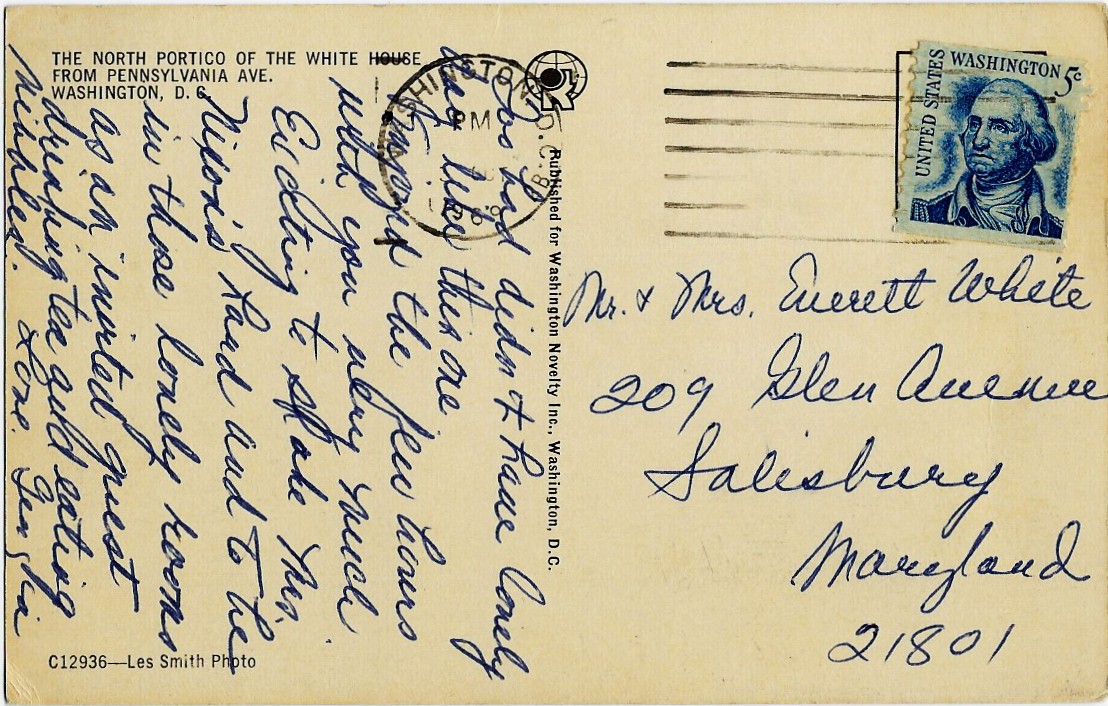 THE NORTH PORTICO OF THE WHITE HOUSE
FROM PENNSYLVANIA AVE.
WASHINGTON, D. C.
Too bad didn't have lovely
day like this one.
Enjoyed the few hours
with you very much
Exciting to shake Mrs.
Nixon's hand and to be
in those lovely rooms
as an invited guest
drinking tea and eating
Love. Georgia
C12936—Les Smith Photo
Published for Washington Novelty Inc., Washington, D.C.
WASHINGTON, D.C.
PM
UNITED STATES
WASHINGTON 5c
Mr. & Mrs. Everett White
209 Glen Avenue
Salisbury
Maryland
21801